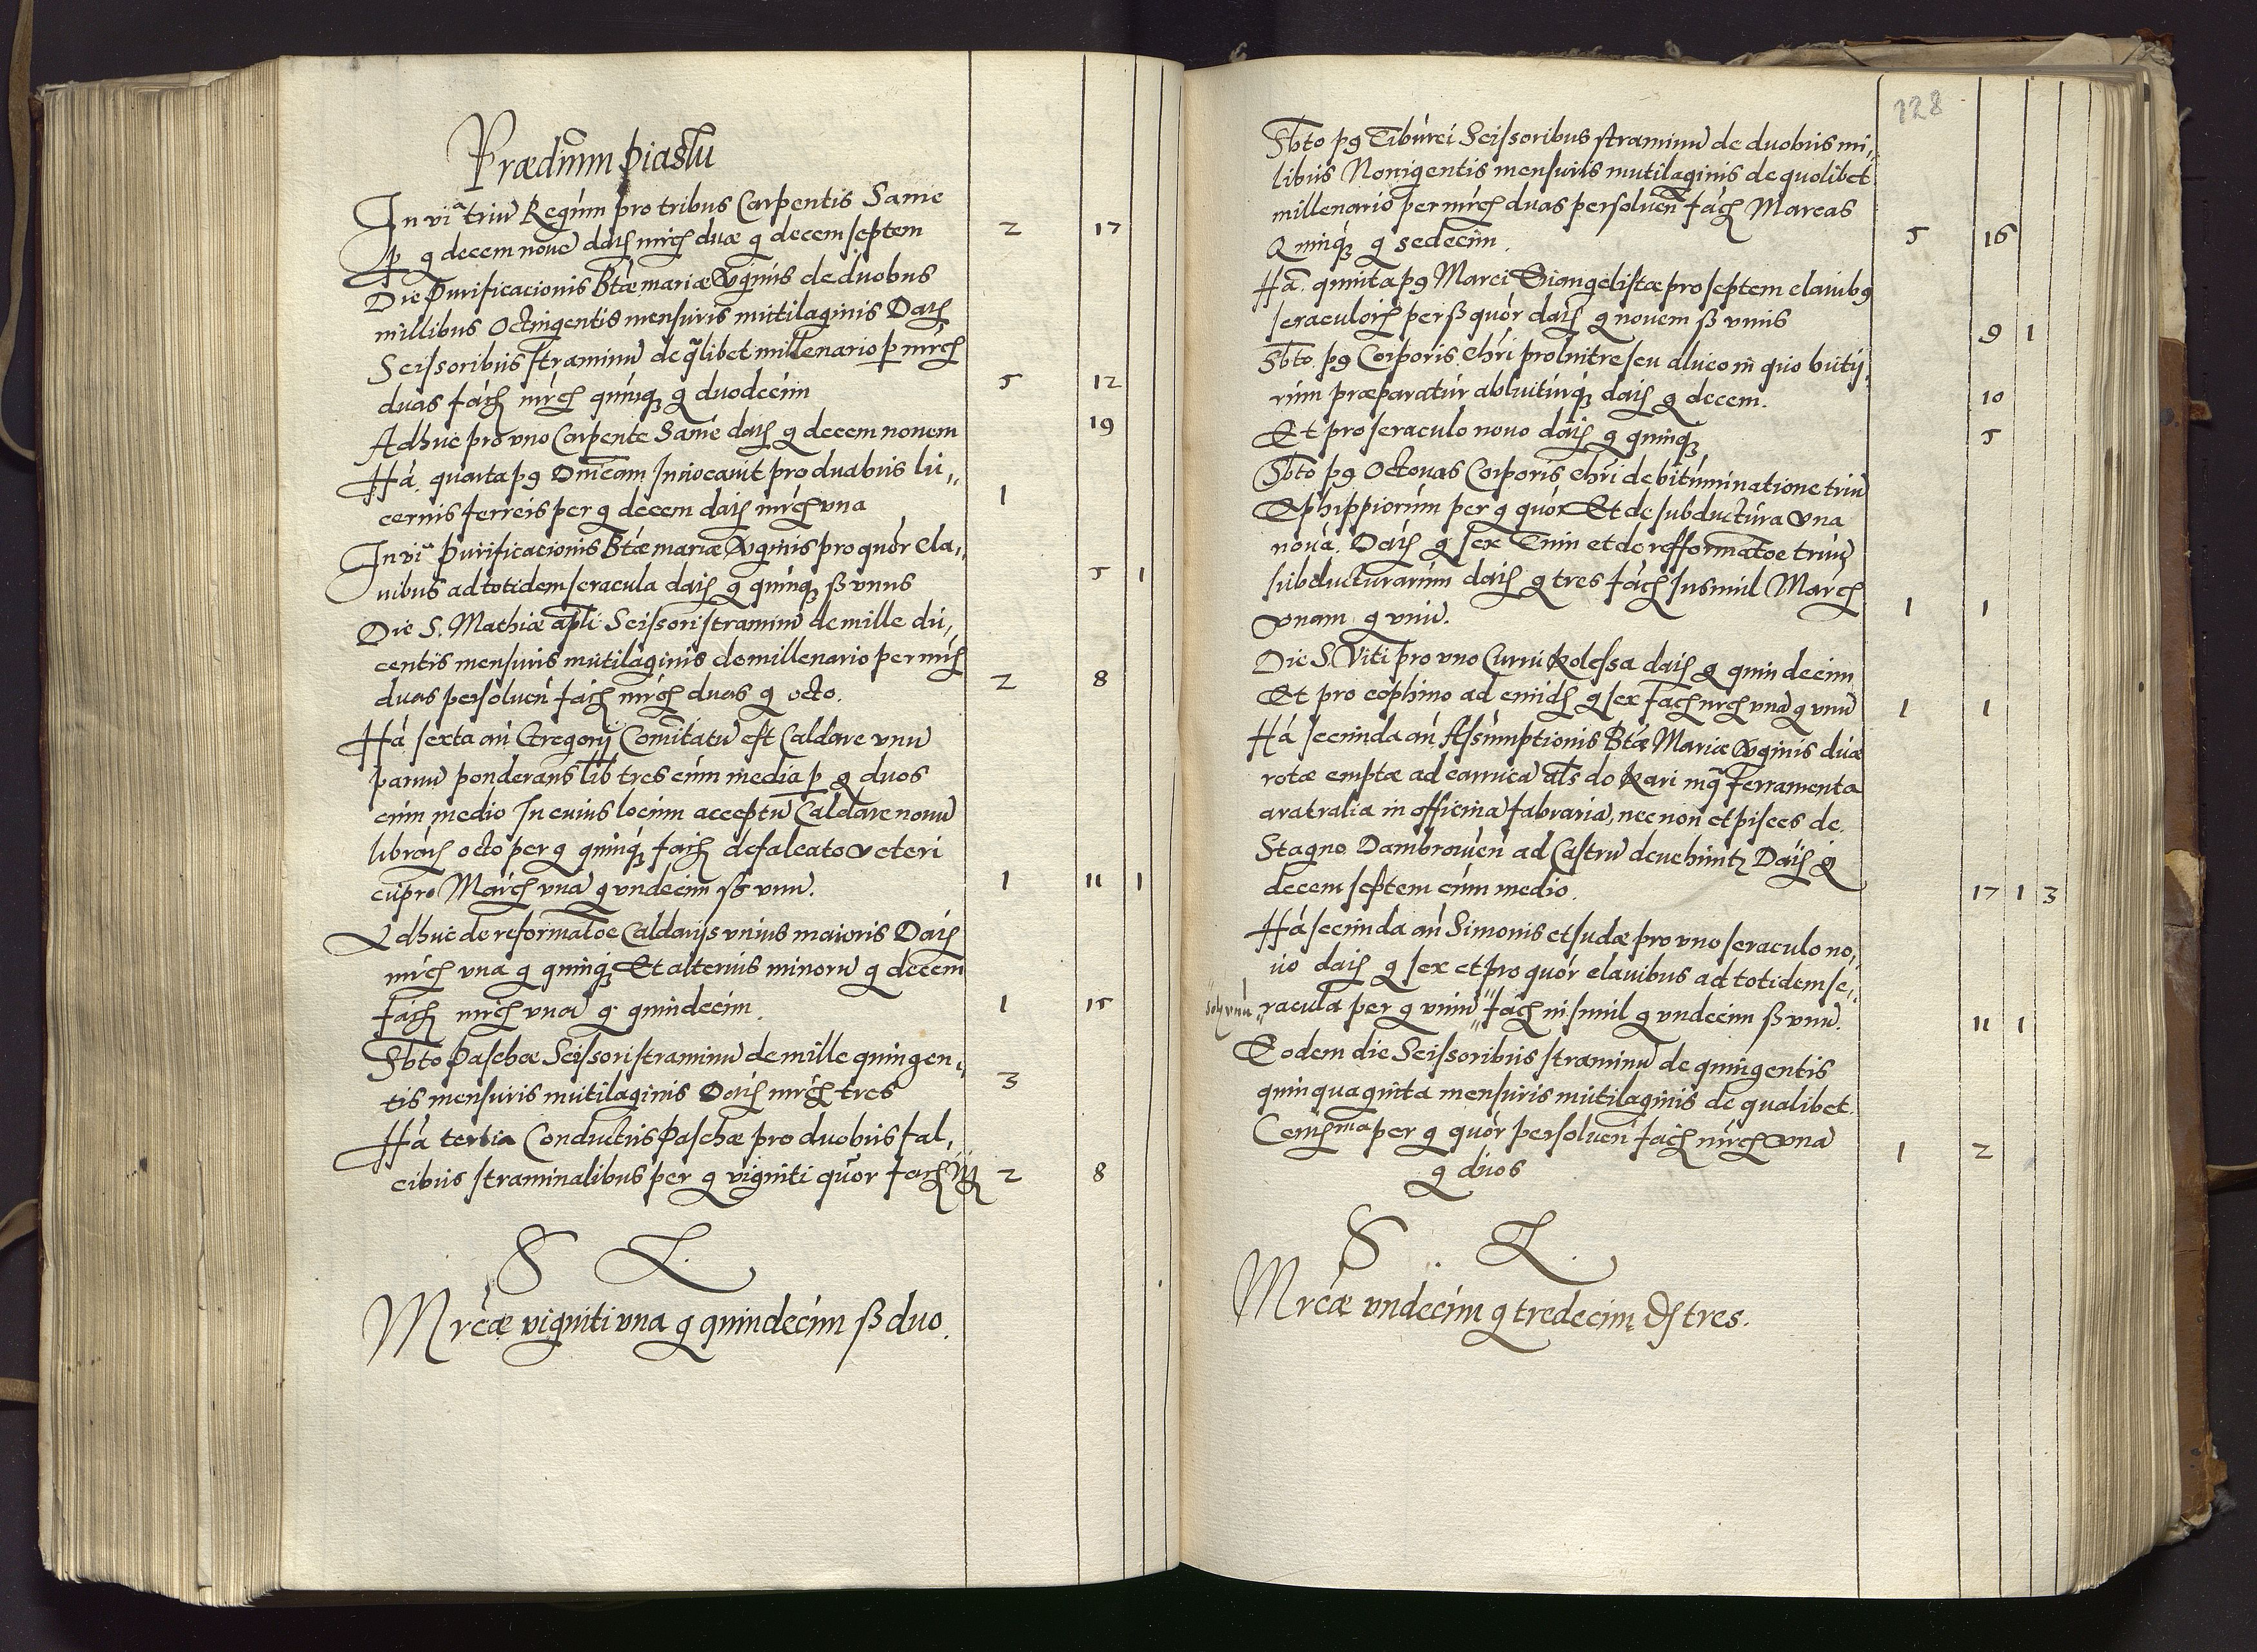 Prædium piastu
In viª triu Regum pro tribus Carpentis Same
p g decem noue dat mrc duæ g decem septem 2 17
Die Purificacionis Btæ mariæ Vginis de duobus
millibus Octingentis mensuris mutilaginis Dat
Scissoribus straminu de qlibet millenario p mrc
duas fac mrc quinq g duodecim 5 12
Adhuc pro vno Carpente Same dat g decem nouem 19
Ha quarta pg Dnicam Inuocauit pro duabus lu,,
cernis ferreis per g decem dat mrc vna 1
In viª purificacionis Btæ mariæ Vginis pro quor cla,,
uibus ad totidem seracula dat g quinq ß vnus 5 1
Die S. Mathiæ apli Scissori straminu de mille du,
centis mensuris mutilaginis de millenario per mrc
duas persoluen fac mrc duas g octo. 2 8
Ha sexta an Gregorij Comitatu est Caldare vnu
paruu ponderans lib tres cum media p g duos
cum medio In cuius locum acceptu Caldare nouu
librar octo per g quinq fac defalcato veteri
cupro Marc vna g vndecim ß vnu. 1 11 1
Adhuc de reformatoe Caldarijs vnius maioris Dat
mrc vna g quinq Et alterius minoru g decem
fac mrc vna g quindecim. 1 15
Sbto Paschæ Scissori straminu de mille quingen,
tis mensuris mutilaginis Dat mrc tres 3
Ha tertia Conductus Paschæ pro duobus fal,
cibus straminalibus per g viginti quor fac 2 8
S L.
Mrcæ viginti vna g quindecim ß duo.
128
Sbto pg Tiburci Scissoribus straminu de duobus mi,,
libus Nonigentis mensuris mutilaginis de quolibet
millenario per mrc duas persoluen fac Marcas
Quinq g sedecim. 5 16
Ha quinta pg Marci Euangelistæ pro septem clauibg
seraculor per ß quor dat g nouem ß vnus 9 1
Sbto pg Corporis Chri pro lnitre seu alueo in quo buty,
rum præparatur abluiturq dat g decem. 10
Et pro seraculo nouo dat g quinq 5
Sbto pg Octouas Corporis Chri de bituminatione triu
Ephippiorum per g quor Et de subductura vna
noua. Dat g sex Tum et de refformatoe triu
subducturarum dat g tres fac Insimul Marc
vnam g vnu. 1 1
Die S. Viti pro vno Curru Kolessa dat g quindecim
Et pro cophino ad eund g sex fac mrc vna g vnu 1 1
Ha secunda an Assumptionis Btæ Mariæ Vginis duæ
rotæ emptæ ad carruca als do Kari inq ferramenta
aratralia in officina fabraria, nec non et pisces de
Stagno Dambrowen ad Castru deuehunt Dat g
decem septem cum medio. 17 1 3
Ha secunda an Simonis et Iudæ pro vno seraculo no,
uo dat g sex et pro quor clauibus ad totidem se,,
racula per g vnu fac in simul g vndecim ß vnu. 11 1
Eodem die Scissoribus straminu de quingentis
quinquaginta mensuris mutilaginis de qualibet
per g quor persoluen fac mrc vna
g duos 1 2
S L.
Mrcæ vndecim g tredecim tres.